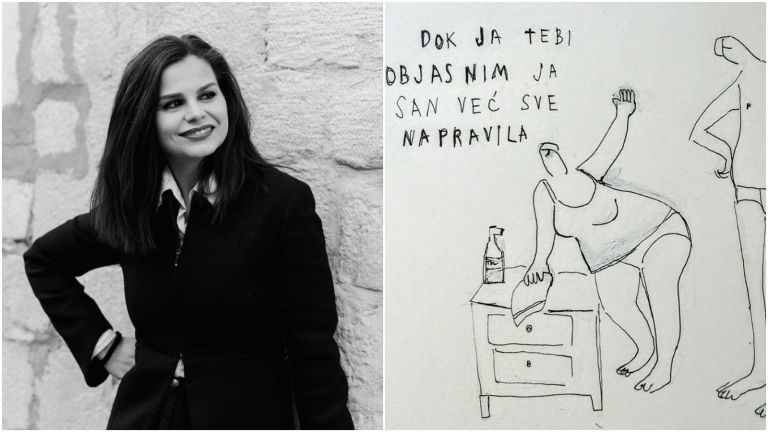 DOK JA TEBI
OBJASNIM JA
SAN VEĆ SVE
NAPRAVILA